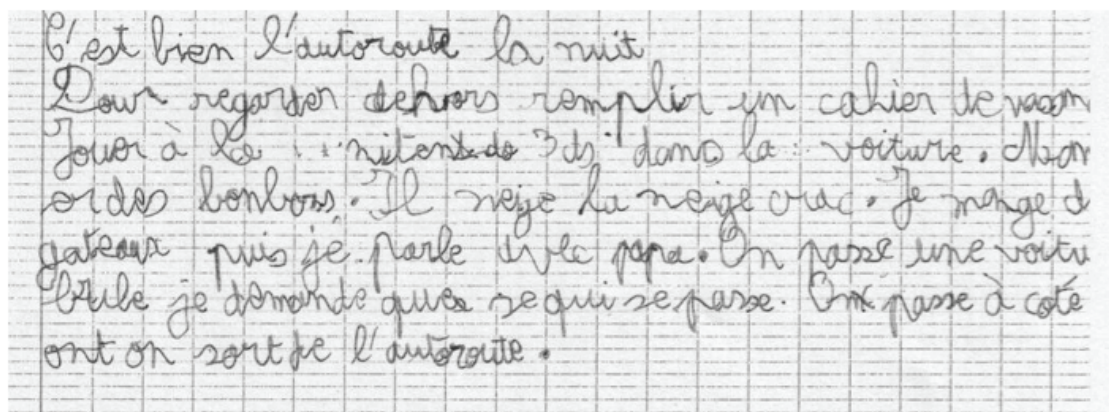 C'est bien l'autoroute la nuit
Pour regarder dehors remplir un cahier de vacan
Jouer à la nitentdo 3ds dans la voiture. Man
er des bonbons. Il neige la neige crac. Je mange d
gateaux puis je parle avec papa. On passe une voitu
brule je demande ques se qui se passe. On passe à coté
ont on sort de l'autoroute.